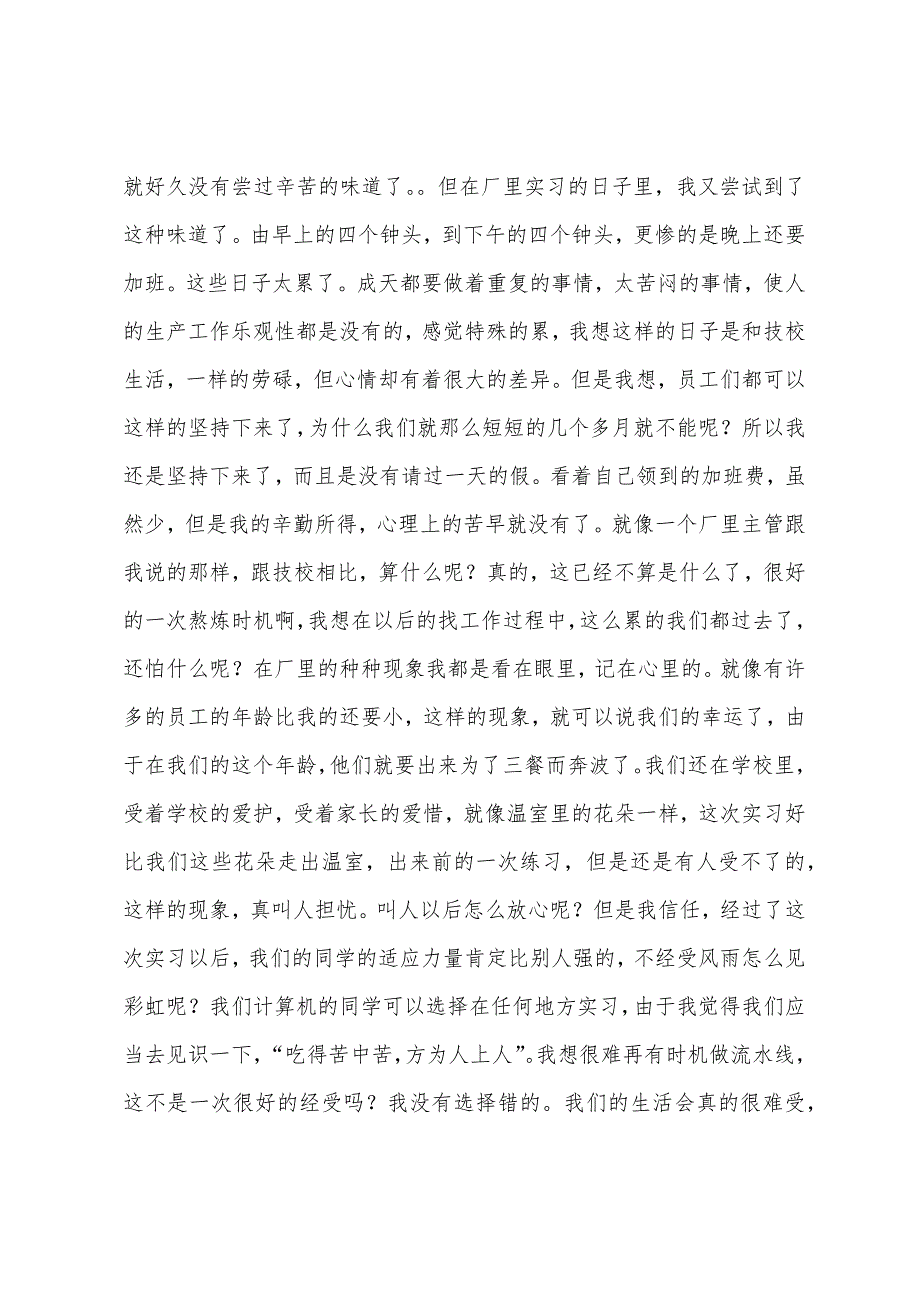 就好久没有尝过辛苦的味道了。。但在厂里实习的日子里，我又尝试到了
这种味道了。由早上的四个钟头，到下午的四个钟头，更惨的是晚上还要
加班。这些日子太累了。成天都要做着重复的事情，太苦闷的事情，使人
的生产工作乐观性都是没有的，感觉特殊的累，我想这样的日子是和技校
生活，一样的劳碌，但心情却有着很大的差异。但是我想，员工们都可以
这样的坚持下来了，为什么我们就那么短短的几个多月就不能呢？所以我
还是坚持下来了，而且是没有请过一天的假。看着自己领到的加班费，虽
然少，但是我的辛勤所得，心理上的苦早就没有了。就像一个厂里主管跟
我说的那样，跟技校相比，算什么呢？真的，这已经不算是什么了，很好
的一次熬炼时机啊，我想在以后的找工作过程中，这么累的我们都过去了，
还怕什么呢？在厂里的种种现象我都是看在眼里，记在心里的。就像有许
多的员工的年龄比我的还要小，这样的现象，就可以说我们的幸运了，由
于在我们的这个年龄，他们就要出来为了三餐而奔波了。我们还在学校里，
受着学校的爱护，受着家长的爱惜，就像温室里的花朵一样，这次实习好
比我们这些花朵走出温室，出来前的一次练习，但是还是有人受不了的，
这样的现象，真叫人担忧。叫人以后怎么放心呢？但是我信任，经过了这
次实习以后，我们的同学的适应力量肯定比别人强的，不经受风雨怎么见
彩虹呢？我们计算机的同学可以选择在任何地方实习，由于我觉得我们应
当去见识一下，“吃得苦中苦，方为人上人”。我想很难再有时机做流水线，
这不是一次很好的经受吗？我没有选择错的。我们的生活会真的很难受，